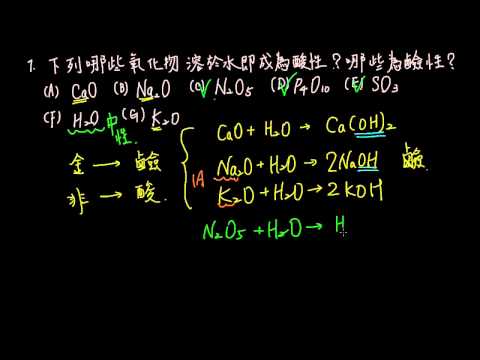 1. 下列哪些氧化物 溶於水即成為酸性？哪些為鹼性？
(A) CaO (B) Na₂O (C) N₂O₅ (D) P₄O₁₀ (E) SO₃
(F) H₂O 中性. (G) K₂O
CaO + H₂O → Ca(OH)₂
金 → 鹼 Na₂O + H₂O → 2NaOH 鹼.
IA
非 → 酸. K₂O + H₂O → 2KOH
N₂O₅ + H₂O → H